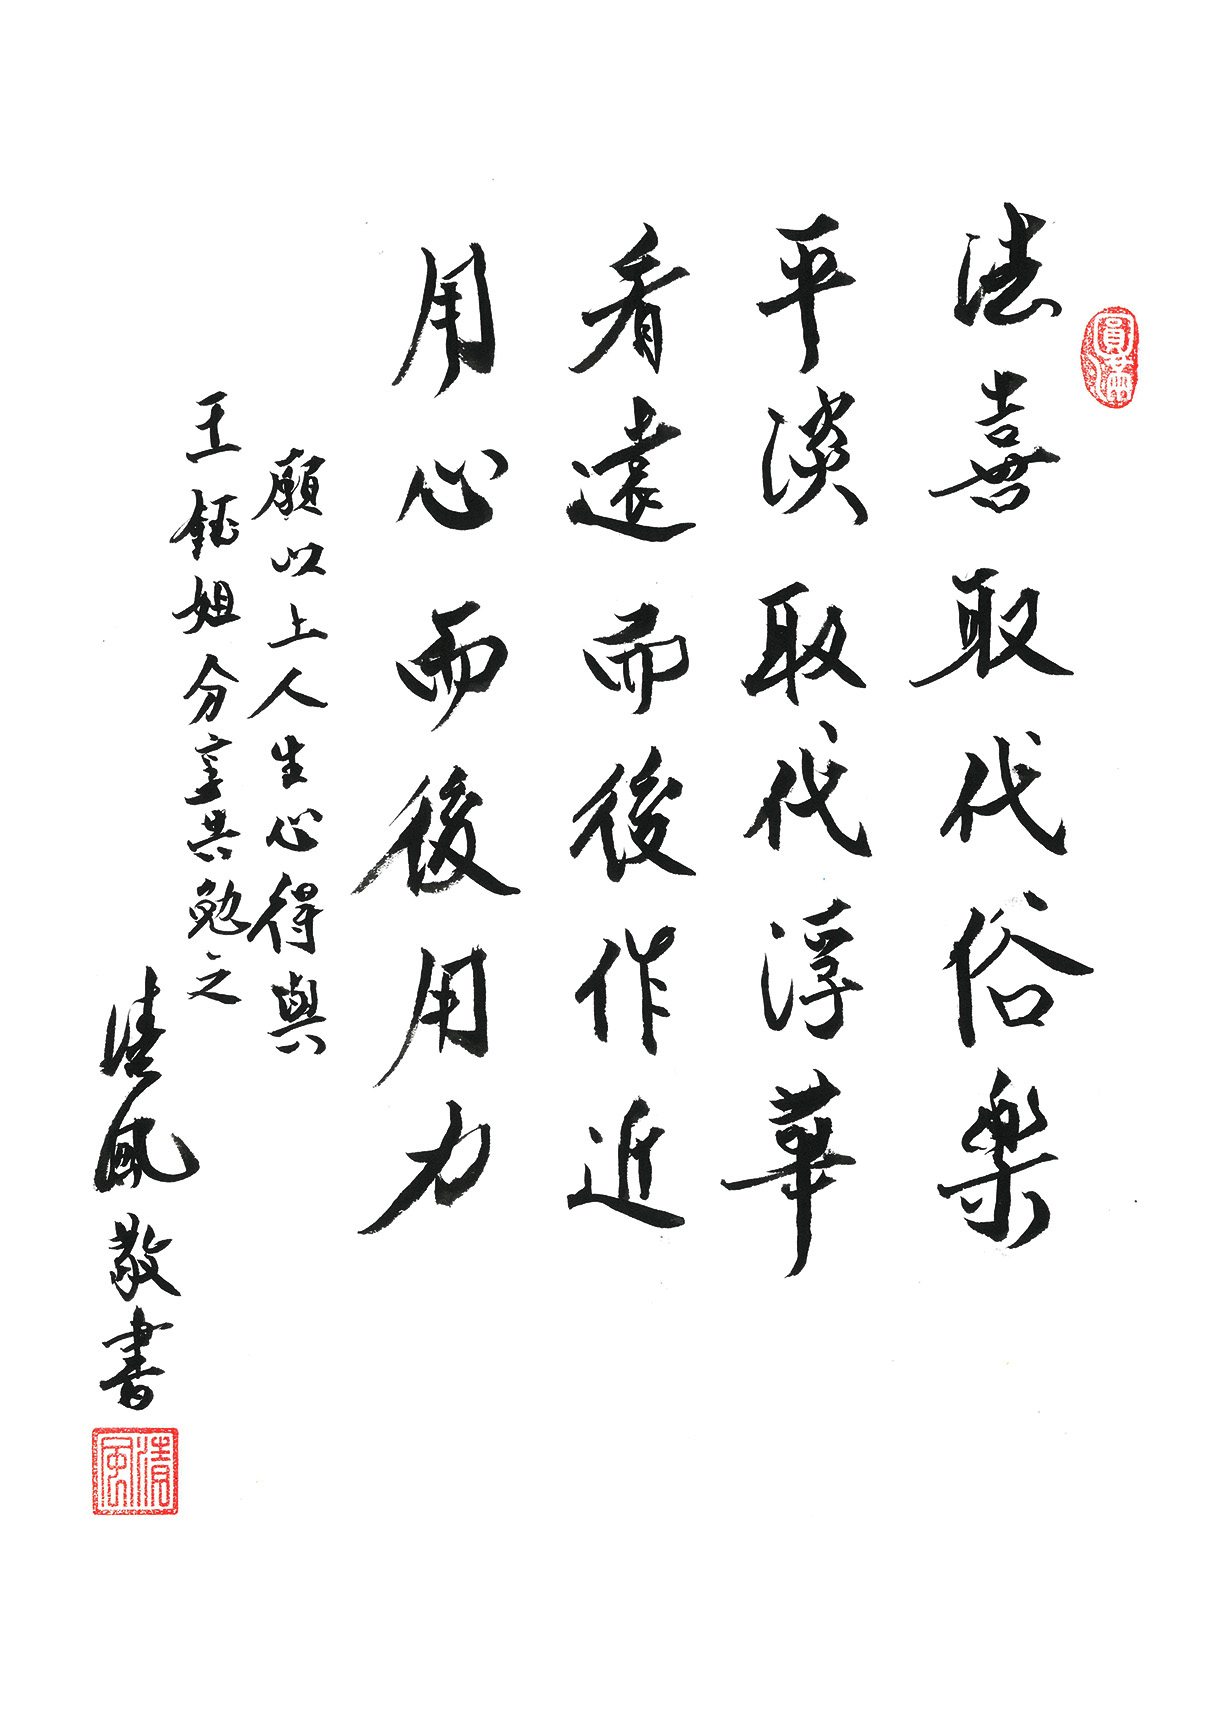 圓滿
法喜取代俗樂
平淡取代浮華
看遠而後作近
用心而後用力
願以上人生心得與
王鈺姐分享共勉之
清風敬書
清風